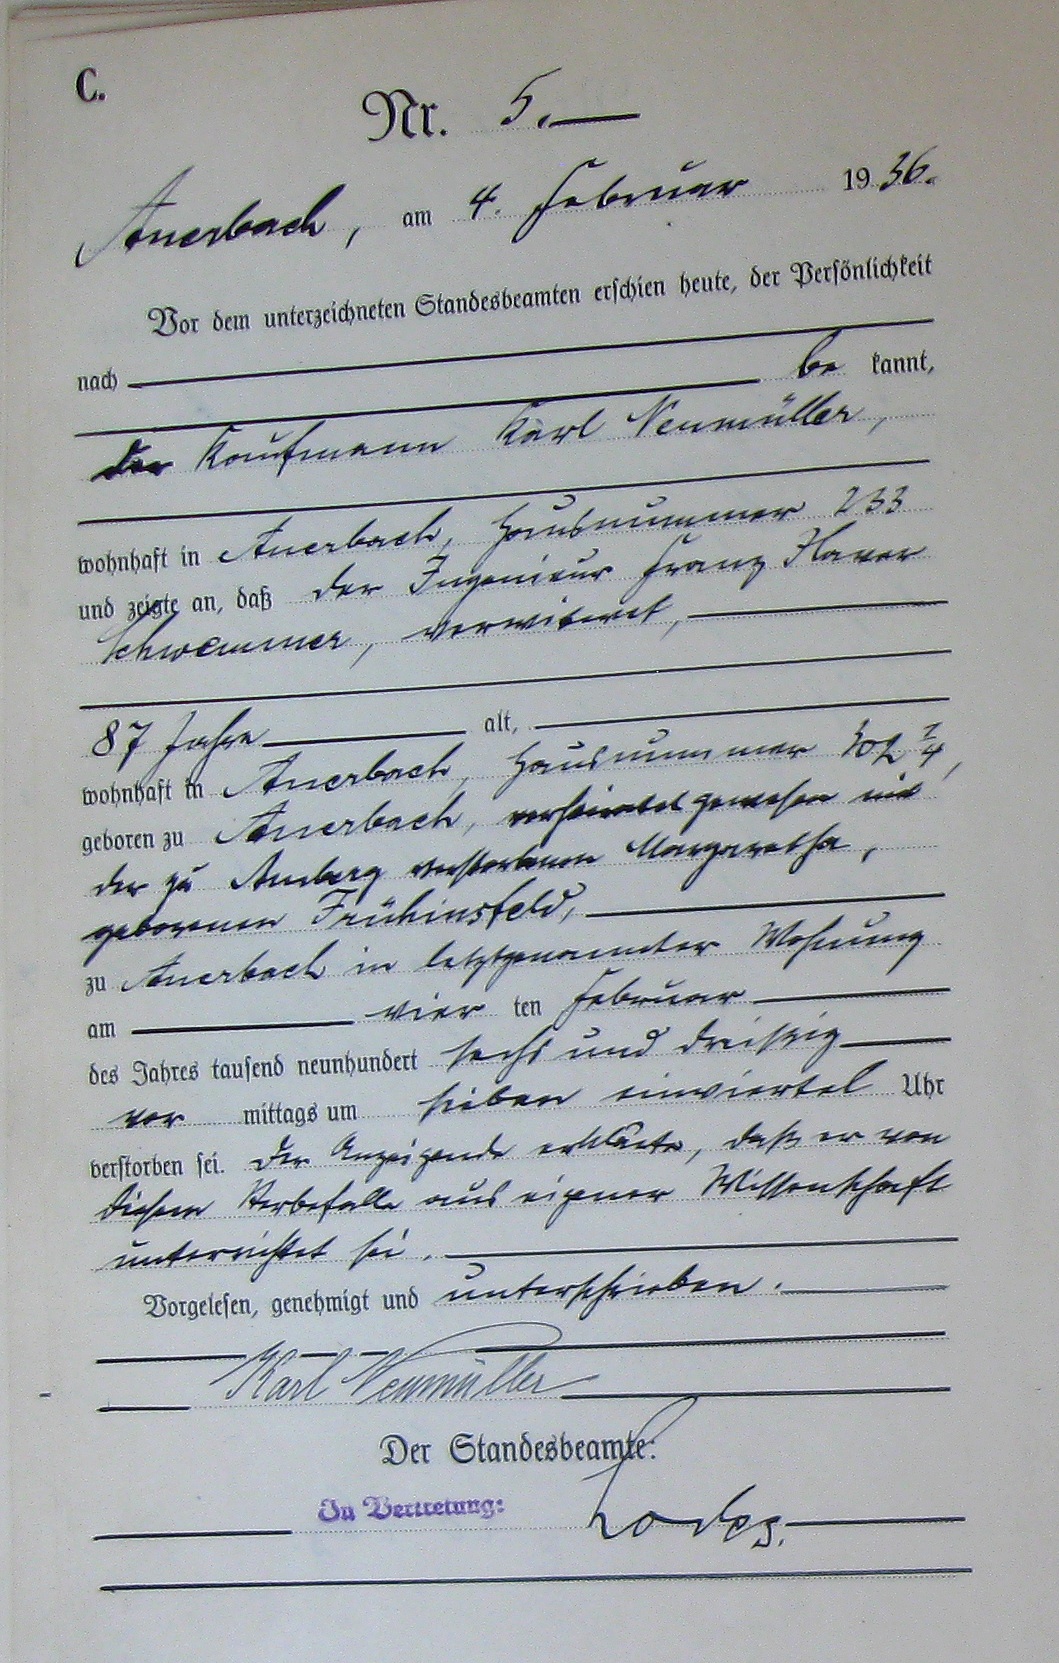 C.
Nr. 5.
Auerbach, am 4. Februar 1936.
Vor dem unterzeichneten Standesbeamten erschien heute, der Persönlichkeit
nach be kannt,
der Kaufmann Karl Neumüller,
wohnhaft in Auerbach, Hausnummer 233
und zeigte an, daß der Ingenieur Franz Xaver
Schwemmer, verwitwet,
87 Jahre alt,
wohnhaft in Auerbach, Hausnummer 102 1/4,
geboren zu Auerbach, verheiratet gewesen mit
der zu Amberg verstorbenen Margaretha,
geborenen Frühinsfeld,
zu Auerbach in letztgenannter Wohnung
am vier ten Februar
des Jahres tausend neunhundert sechs und dreißig
vor mittags um sieben einviertel Uhr
verstorben sei. Der Anzeigende erklärte, daß er von
diesem Sterbefalle aus eigener Wissenschaft
unterrichtet sei.
Vorgelesen, genehmigt und unterschrieben.
Karl Neumüller
Der Standesbeamte:
In Vertretung: